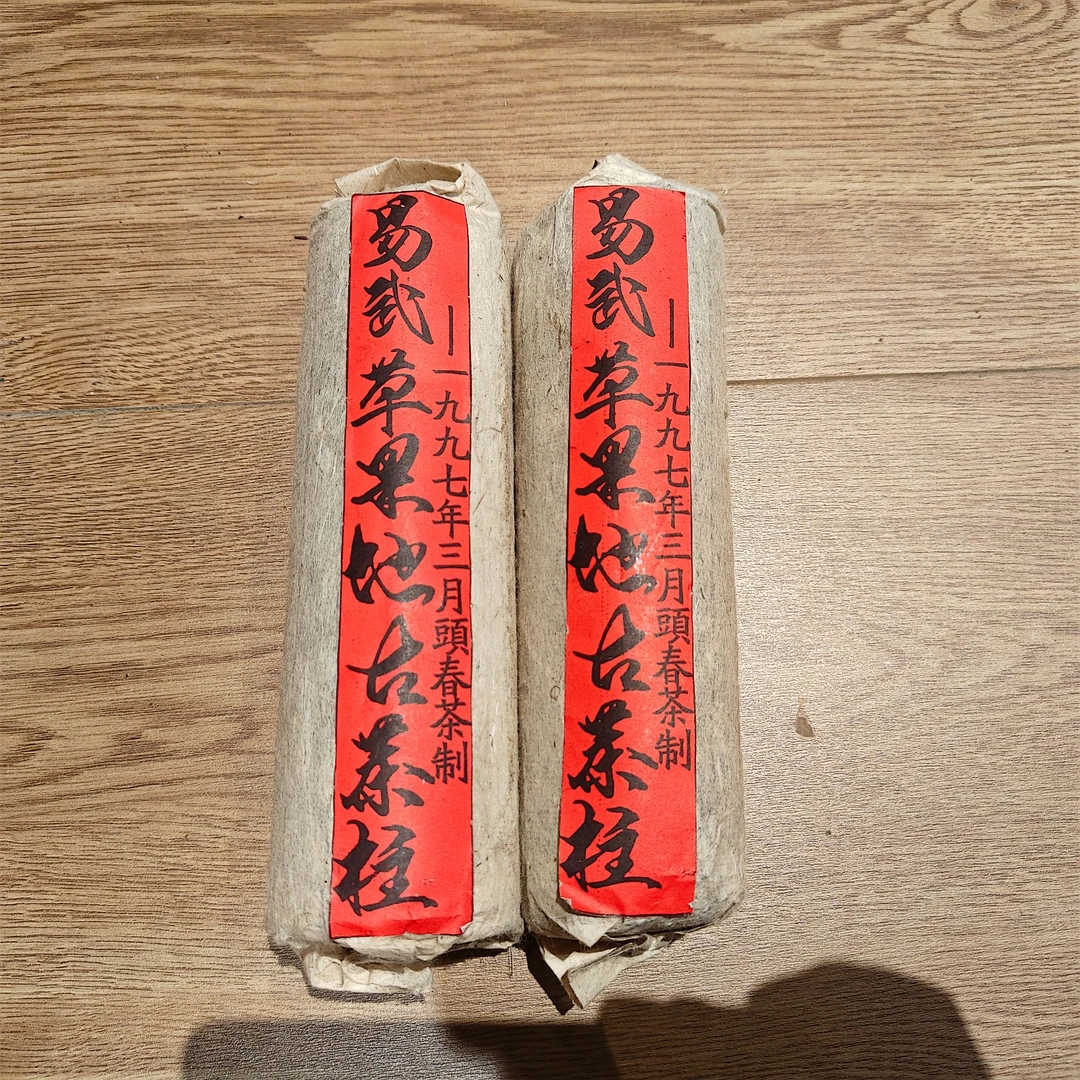 易武草果地古茶柱
—一九九七年三月頭春茶制
易武草果地古茶柱
—一九九七年三月頭春茶制